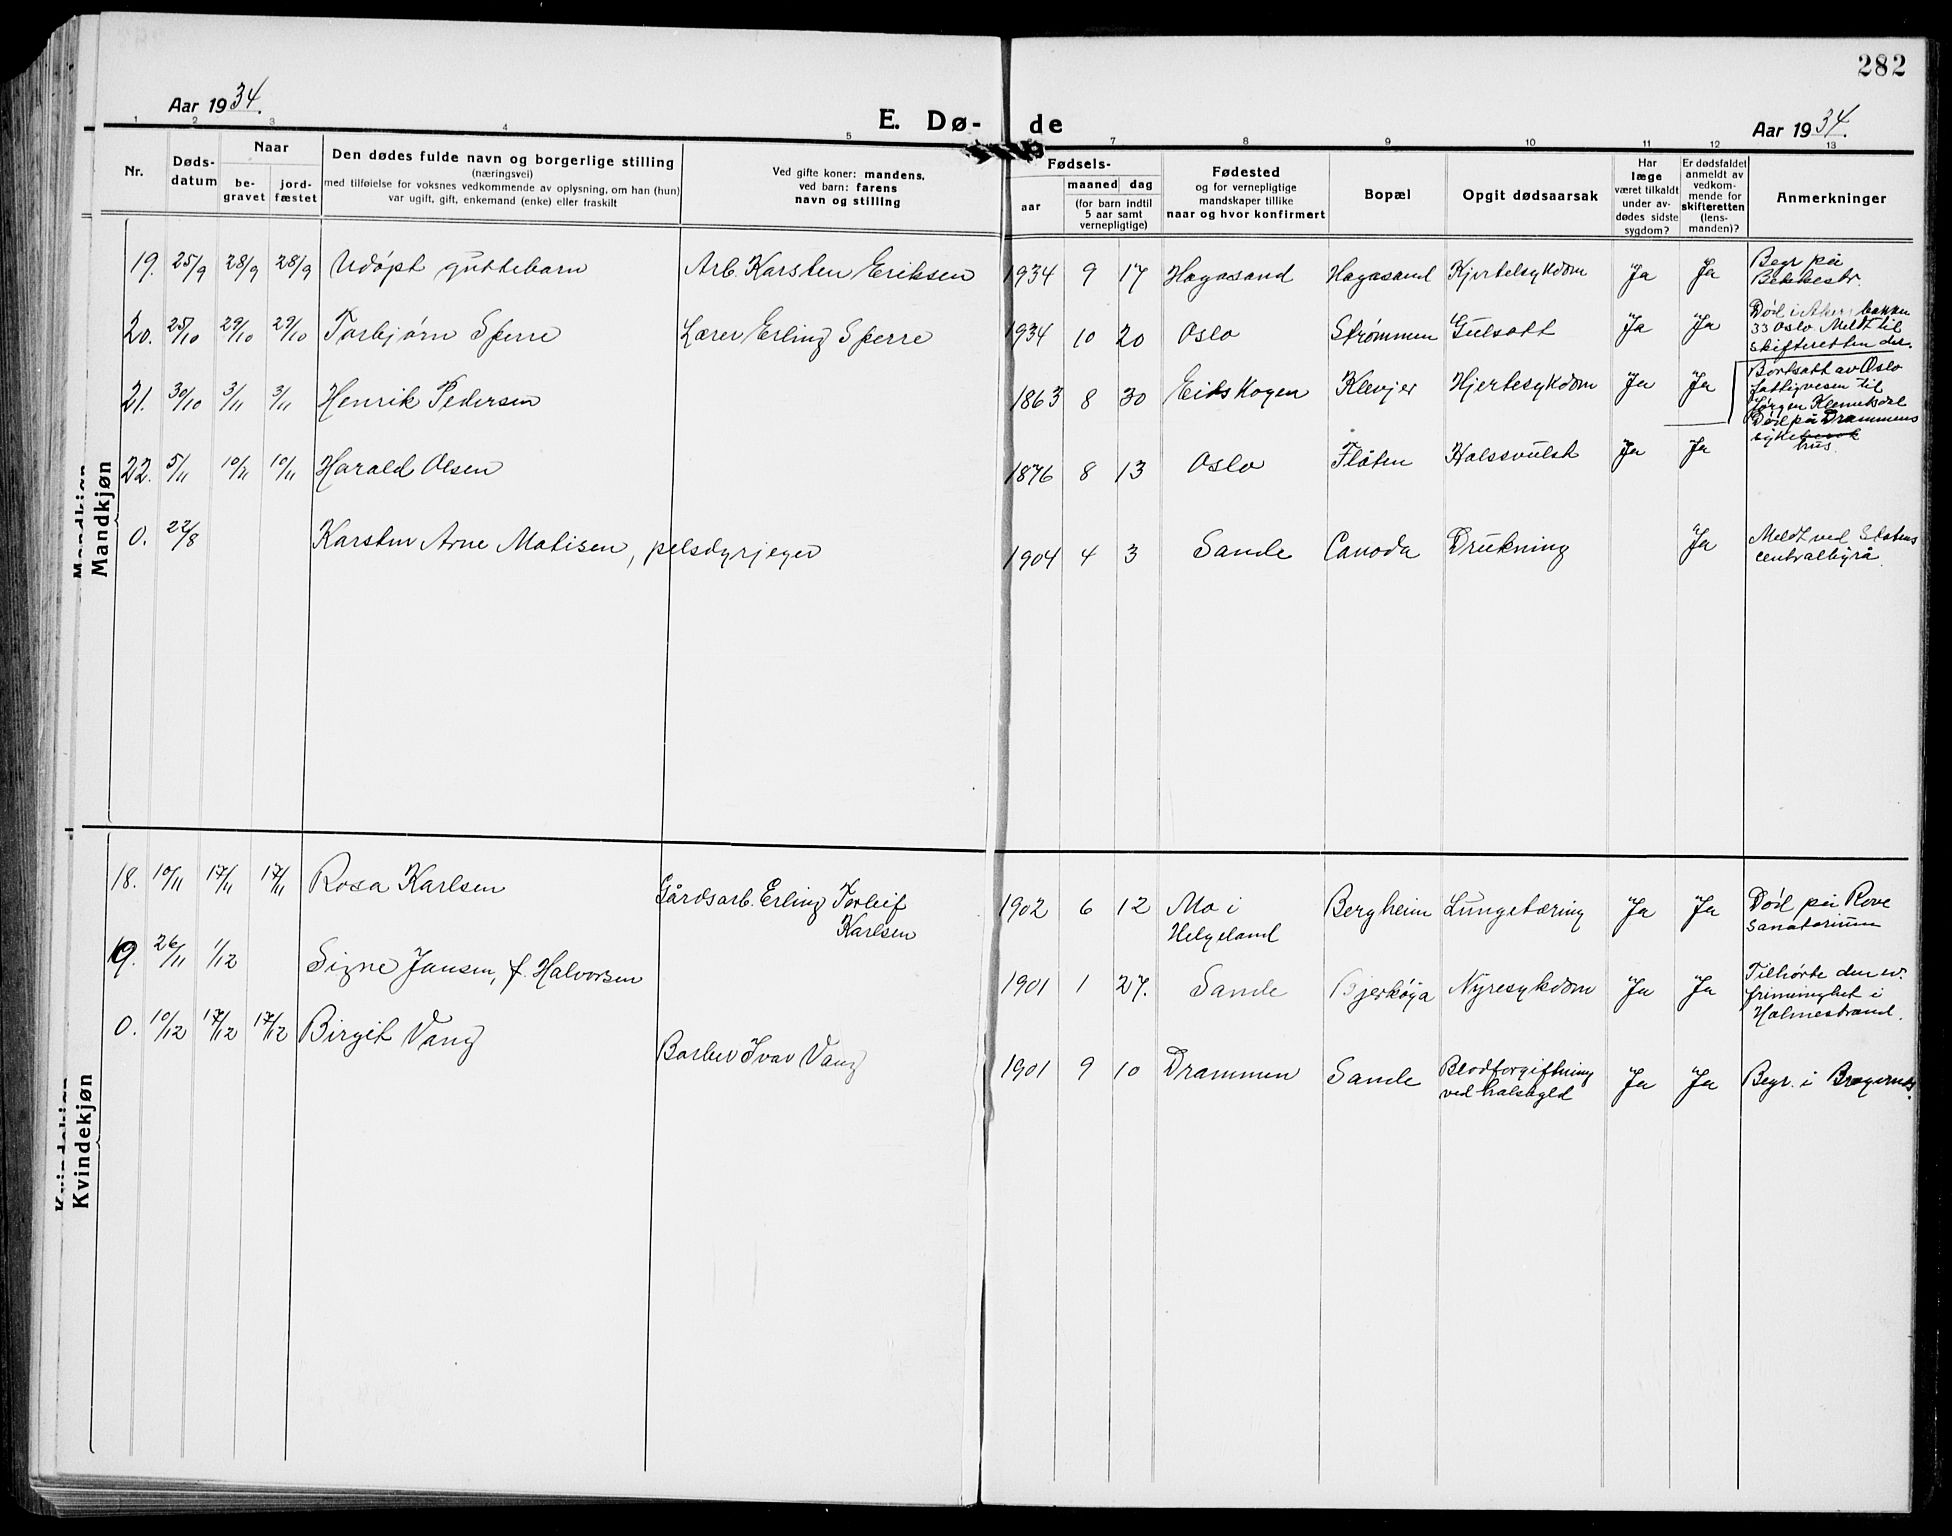 282
Aar 1934.
E. Dø- de
Aar 1934.
1 2 3 4 5 7 8 9 10 11 12 13
Nr.
Døds-
datum
Naar
be-
gravet
jord-
fæstet
Den dødes fulde navn og borgerlige stilling
(næringsvei)
med tilføielse for voksnes vedkommende av oplysning, om han (hun)
var ugift, gift, enkemand (enke) eller fraskilt
Ved gifte koner: mandens,
ved barn: farens
navn og stilling
Fødsels-
aar
maaned dag
(for barn indtil
5 aar samt
vernepligtige)
Fødested
og for vernepligtige
mandskaper tillike
naar og hvor konfirmert
Bopæl
Opgit dødsaarsak
Har
læge
været tilkaldt
under av-
dødes sidste
sygdom?
Er dødsfaldet
anmeldt av
vedkom-
mende for
skifteretten
(lens-
manden)?
Anmerkninger
Mandkjøn
19. 25/9 28/9 28/9 Udøpt guttebarn Arb. Karsten Eriksen 1934 9 17 Hagasand Hagasand Kjertelsykdom Ja Ja Begr på
Bekkestr.
20. 25/10 29/10 29/10 Torbjørn Sperre Lærer Erling Sperre 1934 10 20 Oslo Strømmen Gulsott Ja Ja Død i Akersbakken
33 Oslo. Meldt til
skifteretten der.
21. 30/10 3/11 3/11 Henrik Pedersen 1863 8 30 Eidskogen Klevjer Hjertesykdom Ja Ja Bortsatt av Oslo
fattigvesen til
Jørgen Klemetsdal
22. 5/11 10/11 10/11 Harald Olsen 1876 8 13 Oslo Flåten Halssvulst Ja Ja Død på Drammens
sykehus
0. 22/8 Karsten Arne Matisen, pelsdyrjeger 1904 4 3 Sande Canada Drukning Ja Meldt ved Statens
centralbyrå.
Kvindekjøn
18. 10/11 17/11 17/11 Rosa Karlsen Gårdsarb. Erling Torleif
Karlsen 1902 6 12 Mo i
Helgeland Bergheim Lungetæring Ja Ja Død på Rove
Sanatorium
19. 26/11 1/12 Signe Jansen, f. Halvorsen 1901 1 27. Sande Bjerkøya Nyresykdom Ja Ja Tilhørte den ev.
frimenighet i
Holmestrand.
0. 10/12 17/12 17/12 Birgit Vang Barber Ivar Vang 1901 9 10 Drammen Sande Blodforgiftning
ved halsbyld Ja Ja Begr. i Bragernes.